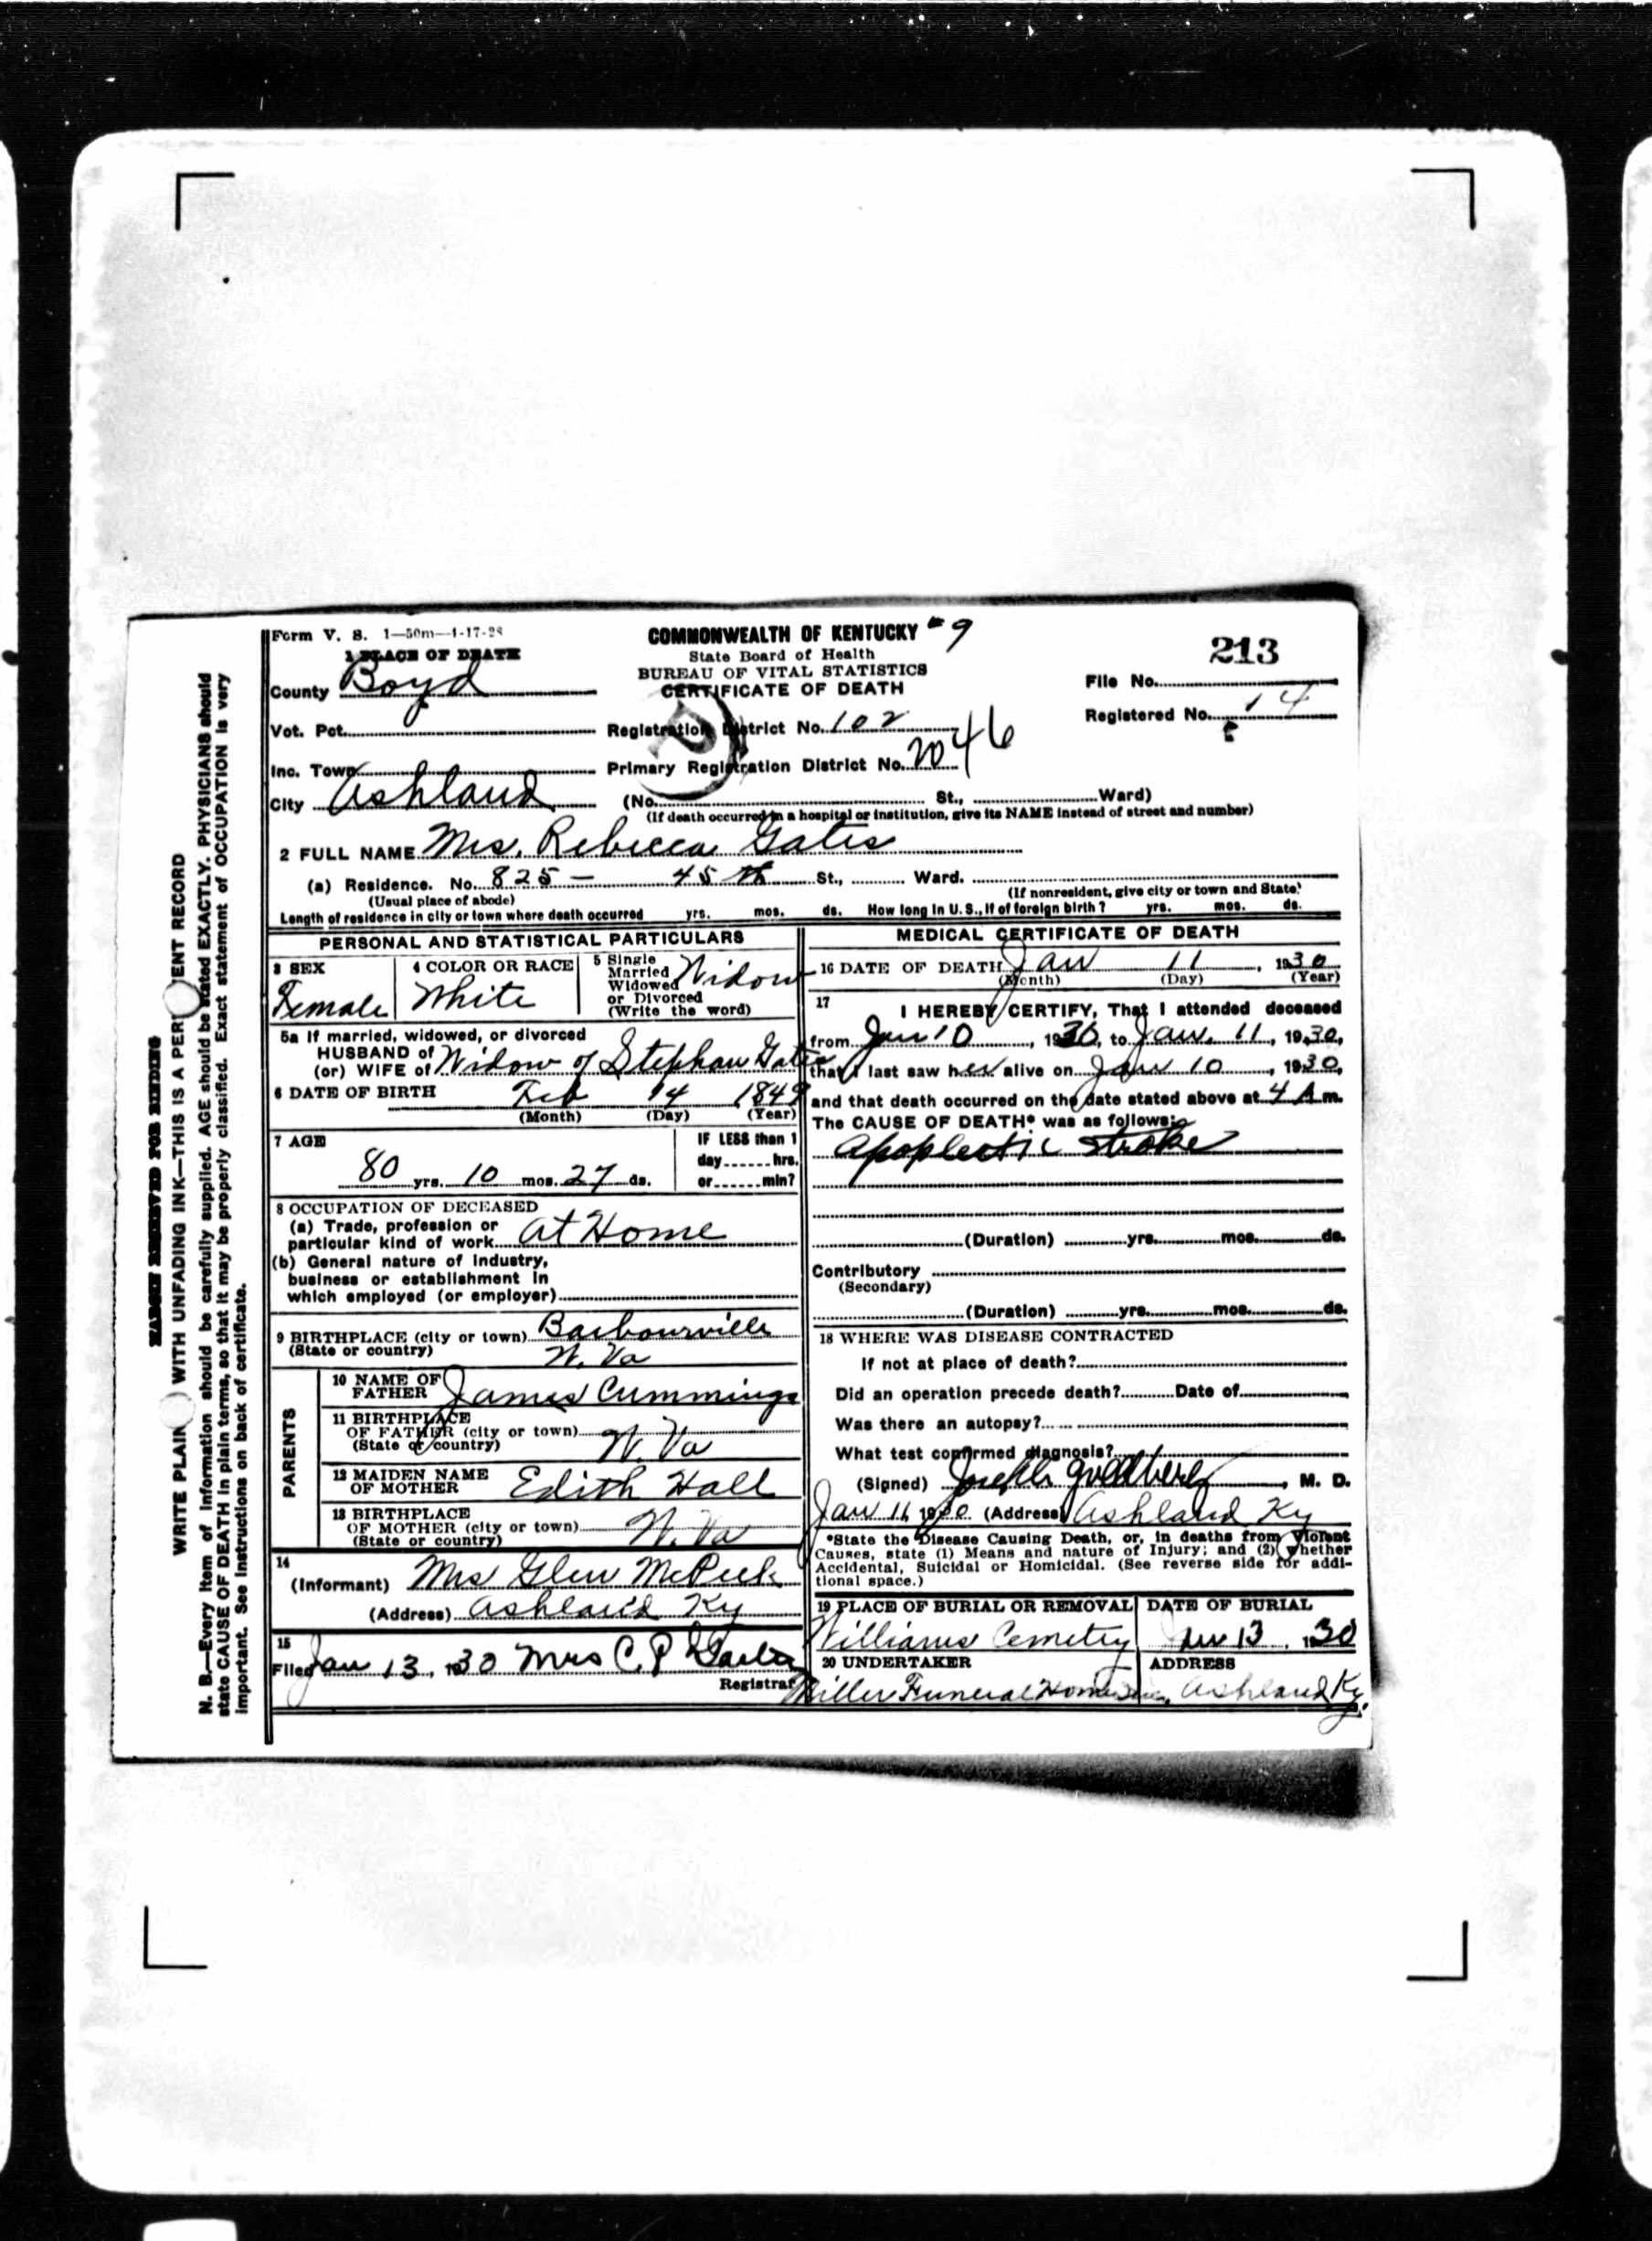 Form V. S. 1—50m—4-17-28
COMMONWEALTH OF KENTUCKY #9
State Board of Health
BUREAU OF VITAL STATISTICS
CERTIFICATE OF DEATH
213
File No.
Registered No. 14
1 PLACE OF DEATH
County Boyd
Vot. Pct.
Registration District No. 102
Inc. Town
Primary Registration District No. 2046
City Ashland
(No. St., Ward)
(If death occurred in a hospital or institution, give its NAME instead of street and number)
2 FULL NAME Mrs. Rebecca Gates
(a) Residence. No. 825 – 45 th St., Ward.
(Usual place of abode)
(If nonresident, give city or town and State)
Length of residence in city or town where death occurred yrs. mos. ds. How long in U. S., if of foreign birth? yrs. mos. ds.
PERSONAL AND STATISTICAL PARTICULARS
3 SEX
Female
4 COLOR OR RACE
White
5 Single
Married
Widowed
or Divorced
(Write the word)
Widow
5a If married, widowed, or divorced
HUSBAND of
(or) WIFE of Widow of Stephan Gates
6 DATE OF BIRTH Feb 14 1849
(Month) (Day) (Year)
7 AGE
80 yrs. 10 mos. 27 ds.
IF LESS than 1
day hrs.
or min?
8 OCCUPATION OF DECEASED
(a) Trade, profession or
particular kind of work At Home
(b) General nature of industry,
business or establishment in
which employed (or employer)
9 BIRTHPLACE (city or town) Barbourville
(State or country) W. Va
PARENTS
10 NAME OF
FATHER James Cummings
11 BIRTHPLACE
OF FATHER (city or town)
(State or country) W. Va
12 MAIDEN NAME
OF MOTHER Edith Hall
13 BIRTHPLACE
OF MOTHER (city or town)
(State or country) W. Va
14
(Informant) Mrs Glen McPeek
(Address) Ashland Ky
15
Filed Jan 13, 1930 Mrs C. P.
Registrar
MEDICAL CERTIFICATE OF DEATH
16 DATE OF DEATH Jan 11, 1930
(Month) (Day) (Year)
17
I HEREBY CERTIFY, That I attended deceased
from Jan 10, 1930, to Jan. 11, 1930,
that I last saw her alive on Jan 10, 1930,
and that death occurred on the date stated above at 4 A m.
The CAUSE OF DEATH* was as follows:
Apoplectic stroke
(Duration) yrs. mos. ds.
Contributory
(Secondary)
(Duration) yrs. mos. ds.
18 WHERE WAS DISEASE CONTRACTED
If not at place of death?
Did an operation precede death? Date of
Was there an autopsy?
What test confirmed diagnosis?
(Signed) Joseph Goldberg, M. D.
Jan 11, 1930 (Address) Ashland Ky
*State the Disease Causing Death, or, in deaths from Violent
Causes, state (1) Means and nature of Injury; and (2) whether
Accidental, Suicidal or Homicidal. (See reverse side for addi-
tional space.)
19 PLACE OF BURIAL OR REMOVAL
Williams Cemetry
DATE OF BURIAL
Jan 13, 1930
20 UNDERTAKER
Miller Funeral Home Inc.
ADDRESS
Ashland Ky.
MARGIN RESERVED FOR BINDING
WRITE PLAIN WITH UNFADING INK—THIS IS A PER ENT RECORD
N. B.—Every item of information should be carefully supplied. AGE should be stated EXACTLY. PHYSICIANS should
state CAUSE OF DEATH in plain terms, so that it may be properly classified. Exact statement of OCCUPATION is very
important. See instructions on back of certificate.